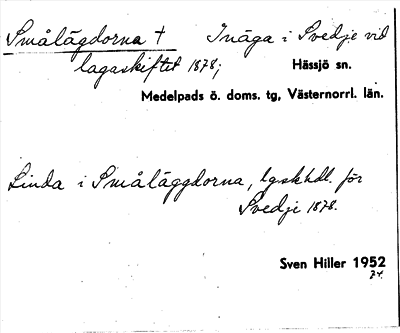 Smålägdorna † Inäga i Svedje vid
lagaskiftet 1878; Hässjö sn.
Medelpads ö. doms. tg, Västernorrl. län.
Linda i Småläggdorna, lgskhdl. för
Svedje 1878.
Sven Hiller 1952